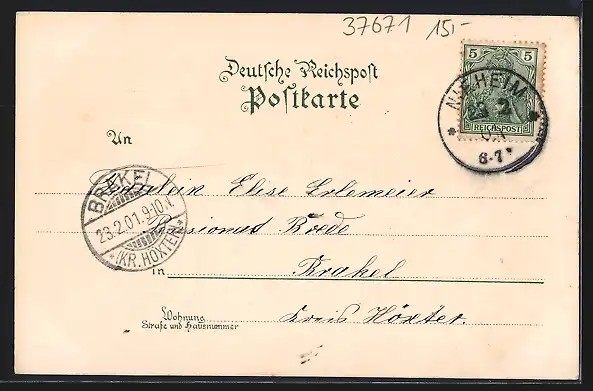 37671 15,-
Deutsche Reichspost
Postkarte
5 5
REICHSPOST
NIEHEIM
23 2
01
6-7
An
BRAKEL
23.2.01.9-10.V.
*(KR. HÖXTER)*
Fräulein Elise Erlemeier
Pensionat Brede
in Brakel
Wohnung
Straße und Hausnummer
Kreis Höxter.